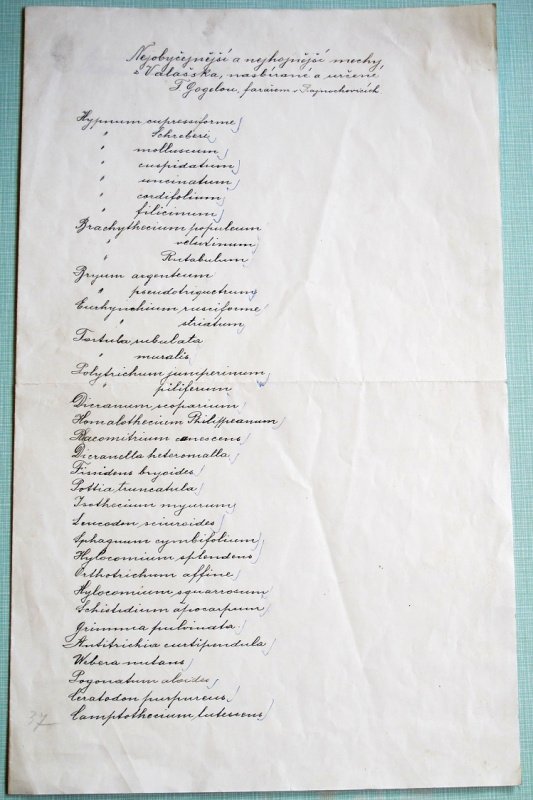 Nejobyčejnější a nejhojnější mechy,
z Valašska, nasbírané a určené
F. Gogelou, farářem v Rajnochovicích
Hypnum cupressiforme
" Schreberi
" molluscum
" cuspidatum
" uncinatum
" cordifolium
" filicinum
Brachythecium populeum
" velutinum
" Rutabulum
Bryum argenteum
" pseudotriquetrum
Eurhynchium rusciforme
" striatum
Tortula subulata
" muralis
Polytrichum juniperinum
" piliferum
Dicranum scoparium
Homalothecium Philippeanum
Racomitrium canescens
Dicranella heteromalla
Fissidens bryoides
Pottia truncatula
Isothecium myurum
Leucodon sciuroides
Sphagnum cymbifolium
Hylocomium splendens
Orthotrichum affine
Hylocomium squarrosum
Schistidium apocarpum
Grimmia pulvinata
Antitrichia curtipendula
Webera nutans
Pogonatum aloides
Ceratodon purpureus
37 Camptothecium lutescens